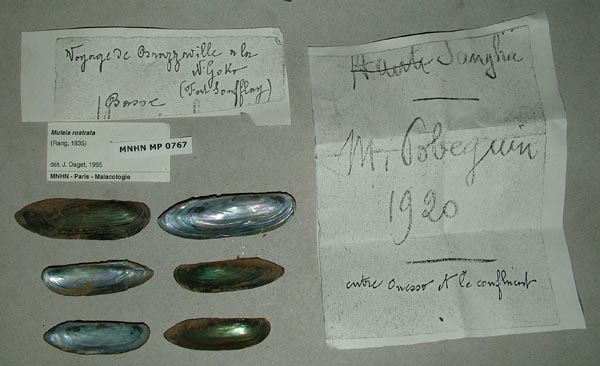 Voyage de Brazzaville à la
N'Goko
(Fort Soufflay)
Basse
Mutela rostrata
(Rang, 1835)
MNHN MP 0767
dét. J. Daget, 1995
MNHN - Paris - Malacologie
Haute Sangha
M. Pobeguin
1920
entre Ouesso et le confluent